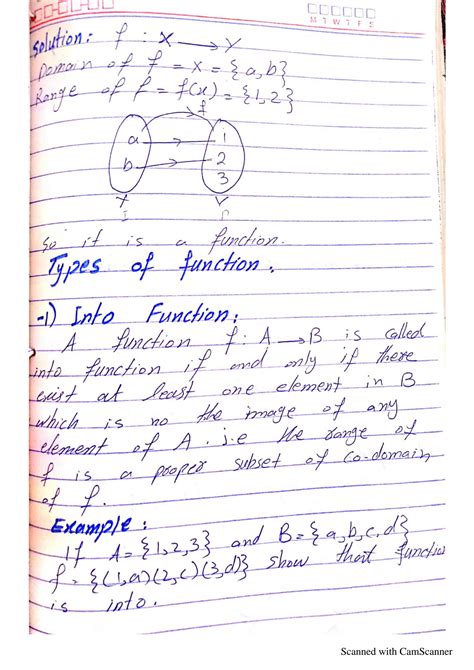 M T W T F S
Solution: f : X → Y
Domain of f = X = {a, b}
Range of f = f(x) = {1, 2}
f
a 1
b 2
3
X Y
So it is a function.
Types of function.
-1) Into Function:
A function f : A → B is called
into function if and only if there
exist at least one element in B
which is no the image of any
element of A . i.e the range of
f is a proper subset of co-domain
of f.
Example:
If A = {1, 2, 3} and B = {a, b, c, d}
f = {(1, a) (2, c) (3, d)} show that function
is into.
Scanned with CamScanner